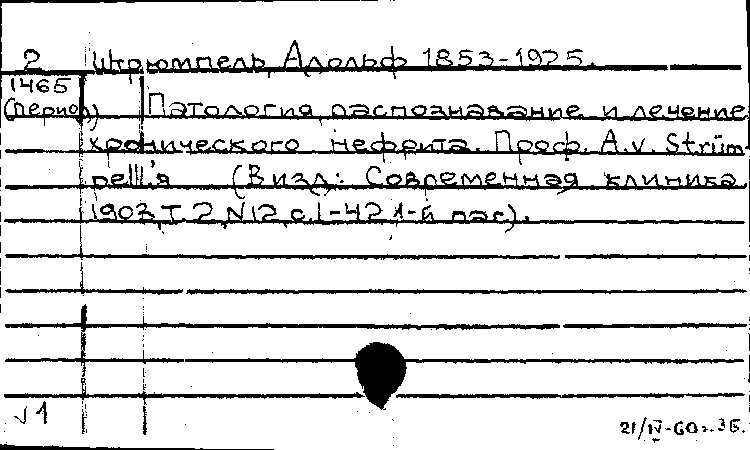 2 Штрюмпель, Адольф 1853-1925.
1465
(период) Патология, распознавание и лечение
хронического нефрита. Проф. A.v. Strüm-
pell'я (В изд: Современная клиника
1903, Т. 2, N12, с.1-42, 1-6 пас).
√ 1
21/IV-60г. ЗБ.